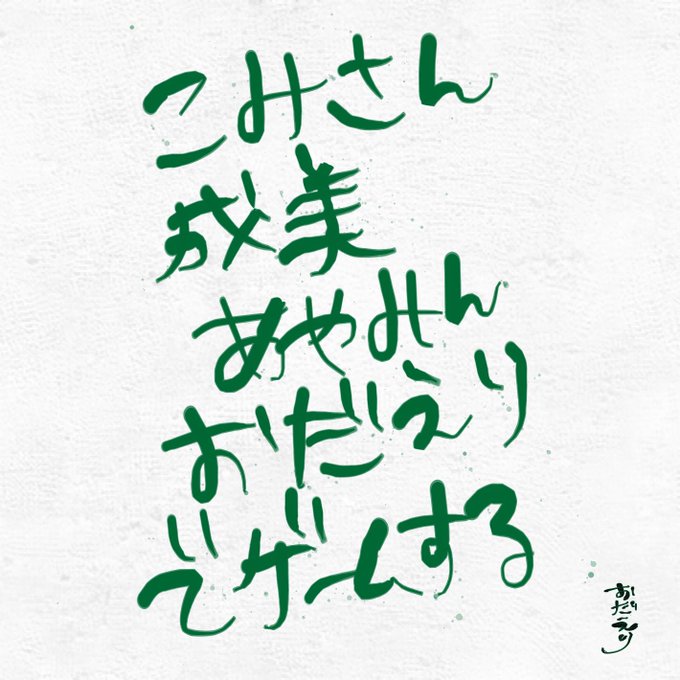 こみさん
成美
あやみん
おだえり
でゲームする
おだえり